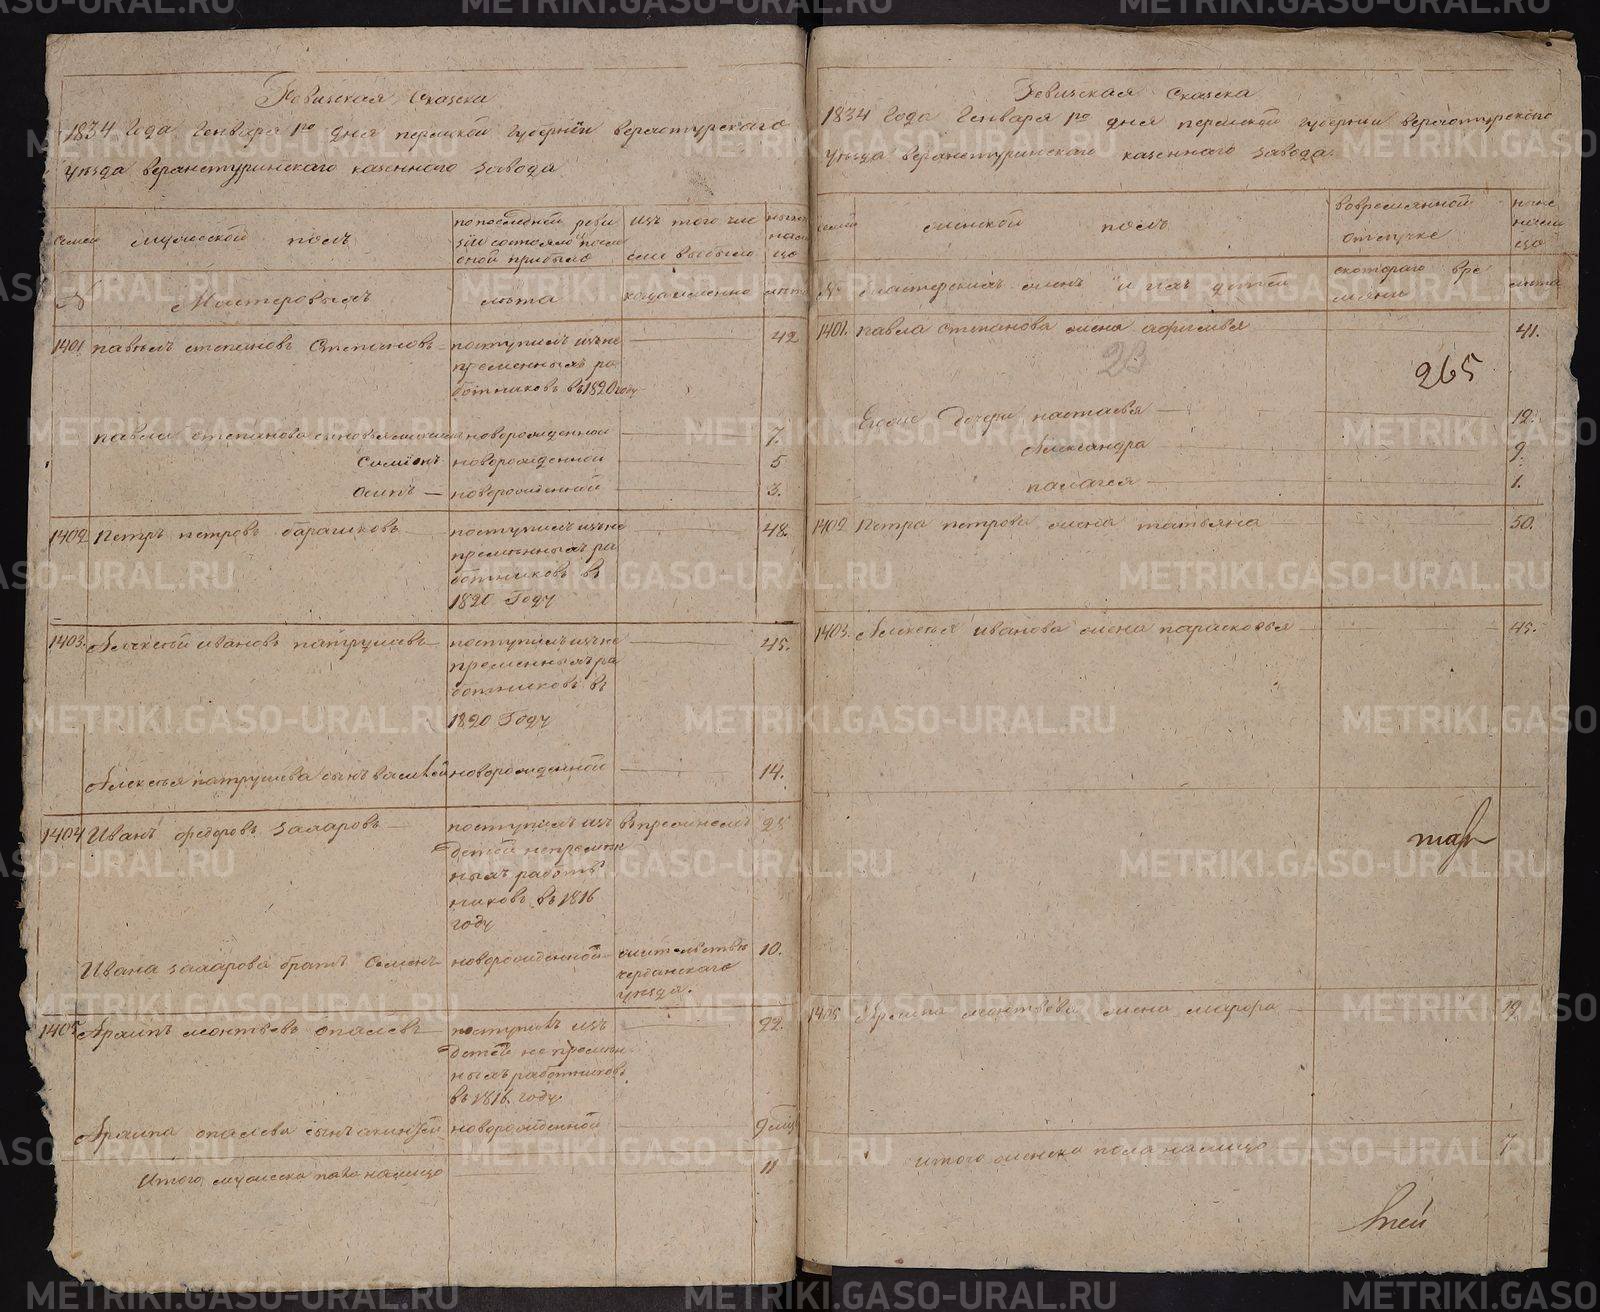 Ревизская Сказка
1834 Года Генваря 1го дня пермской Губернии верхотурского
уезда верхнетуринского казенного завода
семей
мужеской полъ
по последней реви
зии состояло и после
оной прибыло
изъ того чис
ла выбыло
ныне
нали
цо
№
Мастеровыхъ
лета
когда именно
лета
1401 павелъ степановъ Степановъ
поступилъ изъ не
пременныхъ ра
ботниковъ въ 1820 году
42
павла степанова сыновья
новорожденной
7.
Семионъ новорожденной
5
осипъ новорожденной
3.
1402 Петръ петровъ барашковъ
поступилъ изъ не
пременныхъ ра
ботниковъ въ
1820 Году
48.
1403. Алексей ивановъ патрушевъ
поступилъ изъ не
пременныхъ ра
ботниковъ въ
1820 Году
45.
Алексея патрушева сынъ василей новорожденной
14.
1404 Иванъ федоровъ захаровъ
поступилъ изъ
детей непремен
ныхъ работ
никовъ въ 1816
году
25
Ивана захарова братъ Семенъ новорожденной
жительствѣ
чердынскаго
уезда.
10.
1405 Архипъ леонтьевъ опалевъ
поступилъ изъ
детей не премен
ныхъ работниковъ
въ 1816 году
22.
Архипа опалева сынъ
новорожденной
Итого мужеска пола налицо
11
Ревизская Сказка
1834 Года Генваря 1го дня пермской губернии верхотурского
уезда верхнетуринского казенного завода
семей
женской полъ
вовремянной
отлучке
ныне
нали
цо
№
мастерскихъ женъ и ихъ детей
скотораго вре
мяни
лета
1401. павла степанова жена афимья
41.
23
265
Егоже дочери настасья
12.
Александра
9.
палагея
1.
1402 Петра петрова жена татьяна
50.
1403. Алексея иванова жена парасковья
45.
1405 Архипа леонтьева жена
19
итого женска пола налицо
7